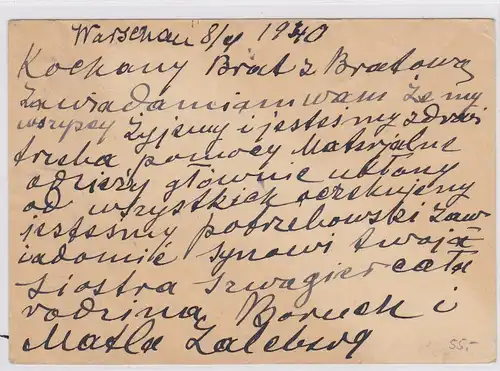 Warschau 8/V 1940
Kochany Brat z Bratową
Zawiadamiam wam że my
wszyscy żyjemy i jesteśmy zdrowi
trzeba pomocy Materjalne
odzieży głównie ubłony
od wszystkich oczekujemy
jesteśmy potrzebowski zaw
iadomić synowi twoja
siostra szwagier cała
rodzina Boruch i
Matla Zalcberg
55.-